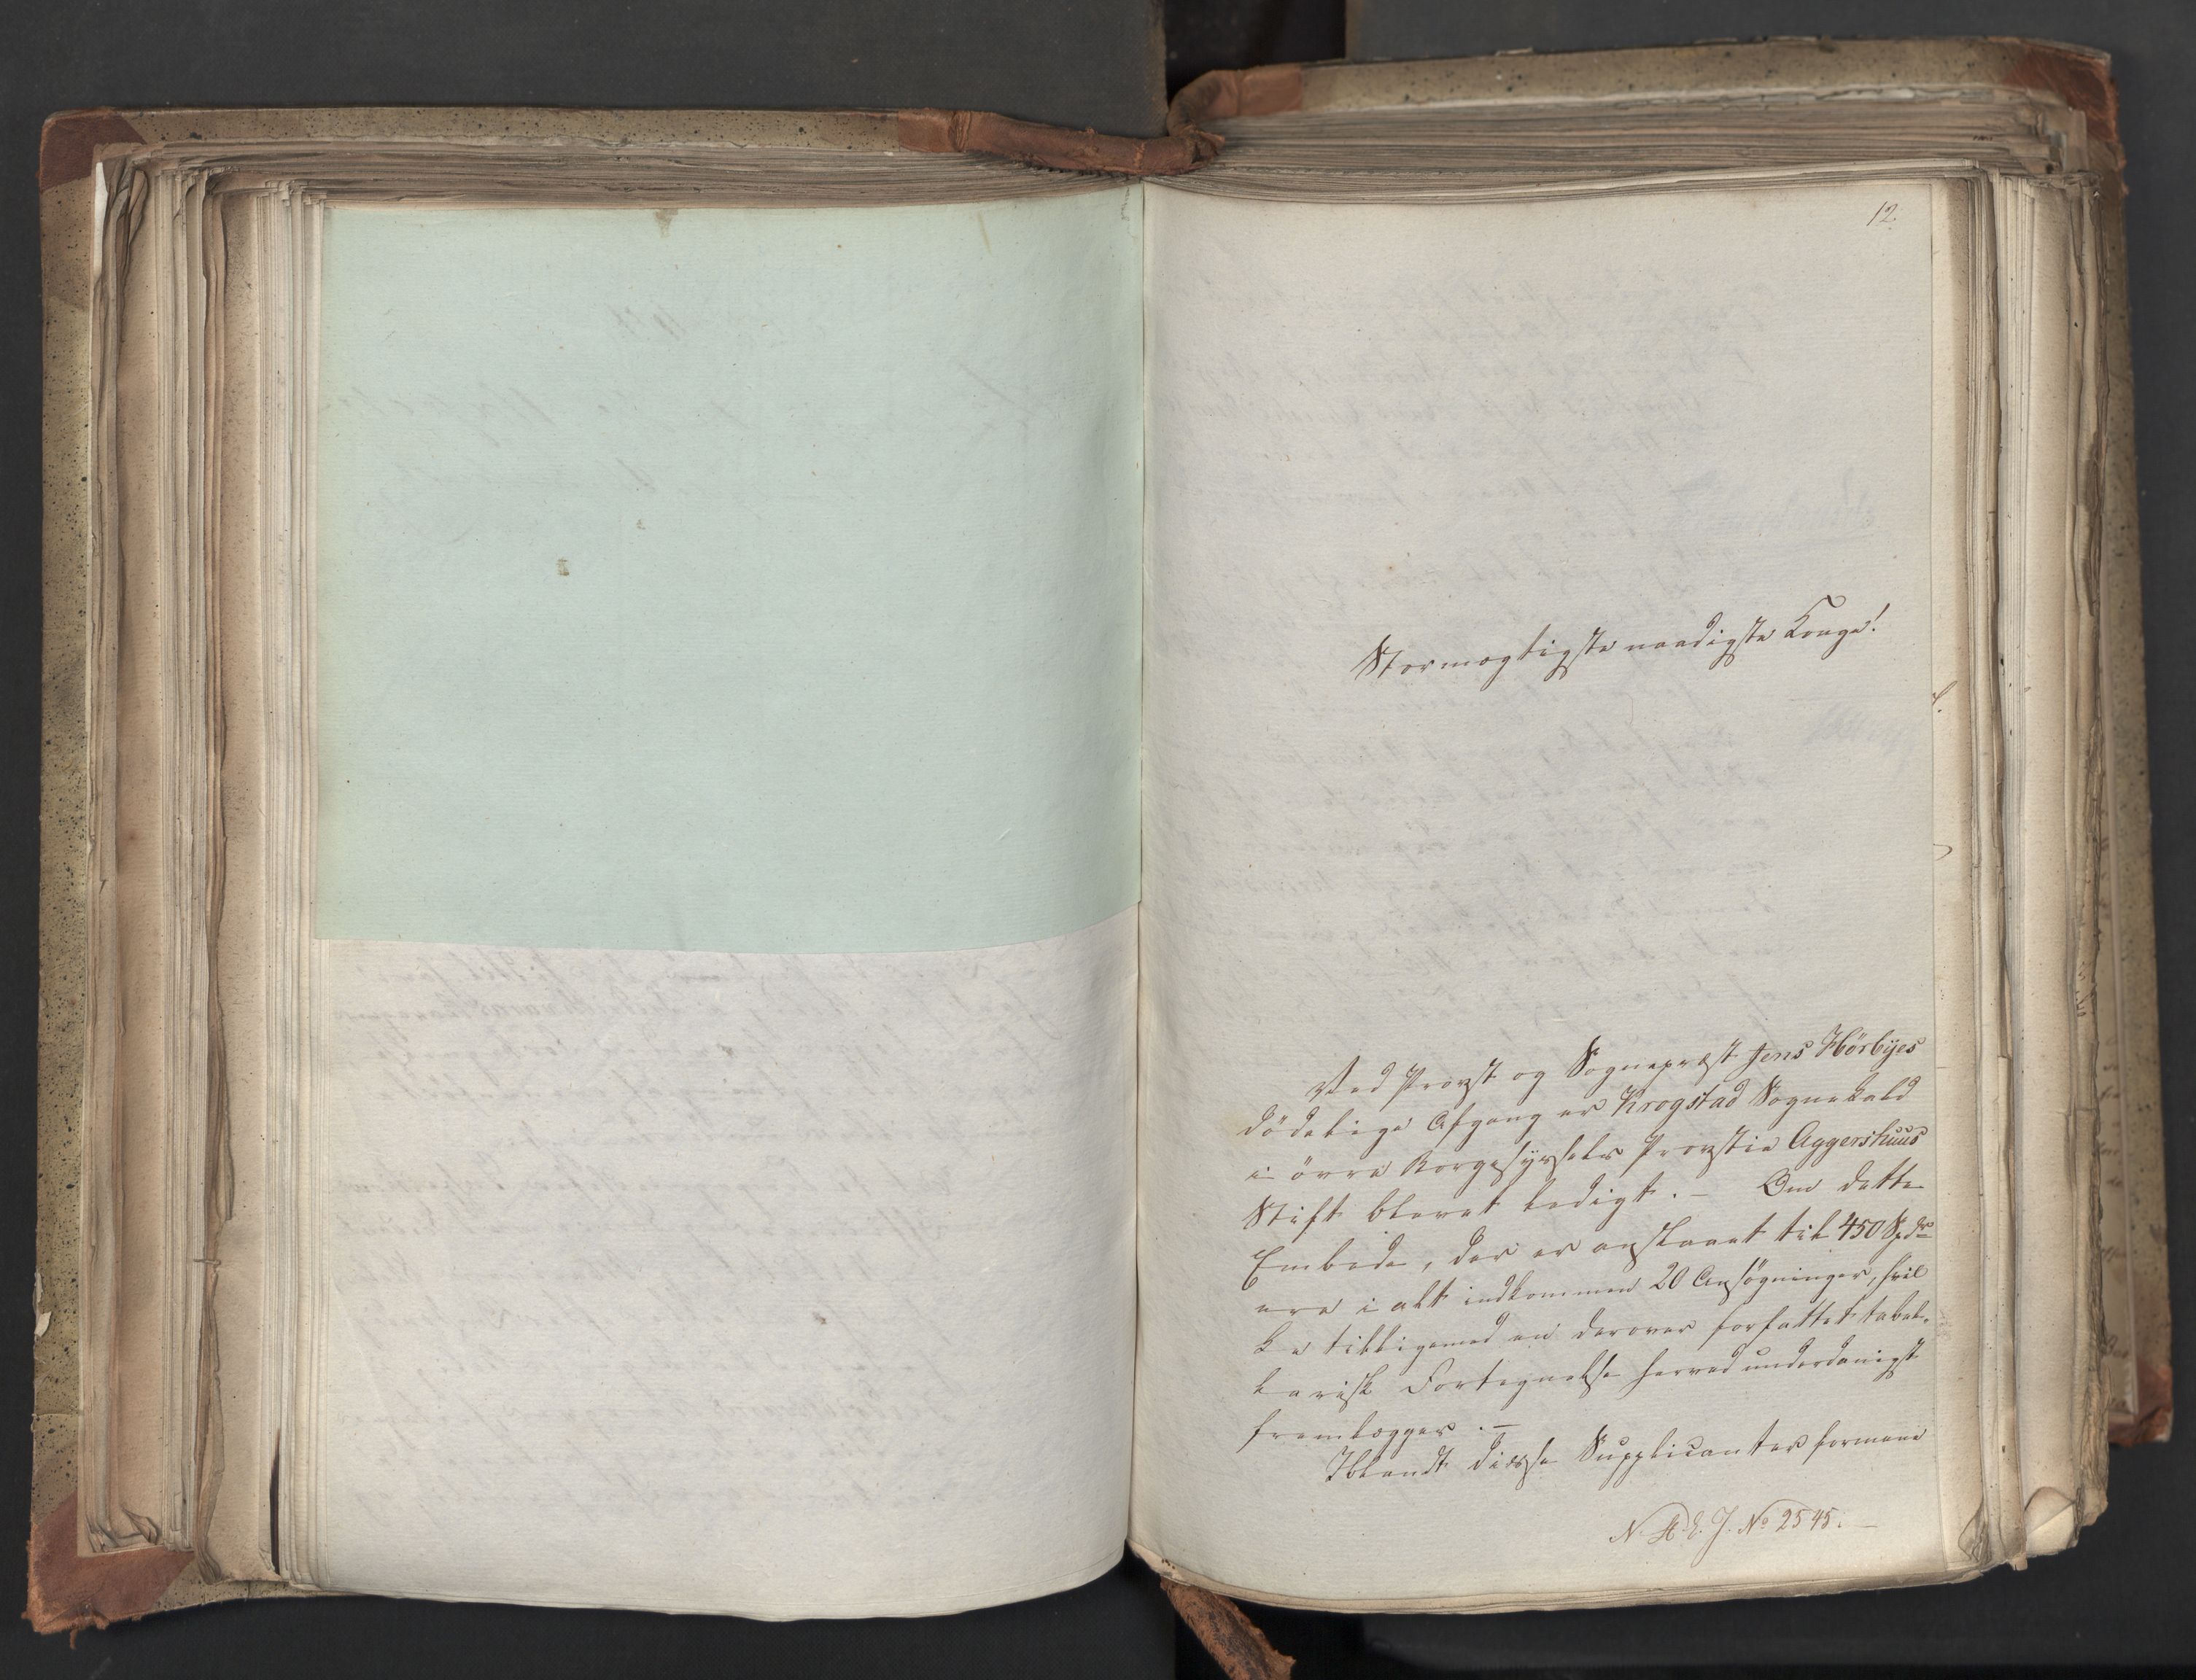 12.
Stormægtigste naadigste Konge!
Ved Provst og Sognepræst Jens Hörbÿes
dödelige Afgang er Krogstad Sognekald
i övre Borgesÿssels Provstie Aggershuus
Stift blevet ledigt. – Om dette
Embede, der er anslaaet til 450 Spdr
ere i alt indkommen 20 Ansögninger, hvil
ke tilligemed en derover forfattet tabel-
larisk Fortegnelse herved underdanigst
fremlægges. –
Iblandt disse Supplicanter formene
No 2545. –